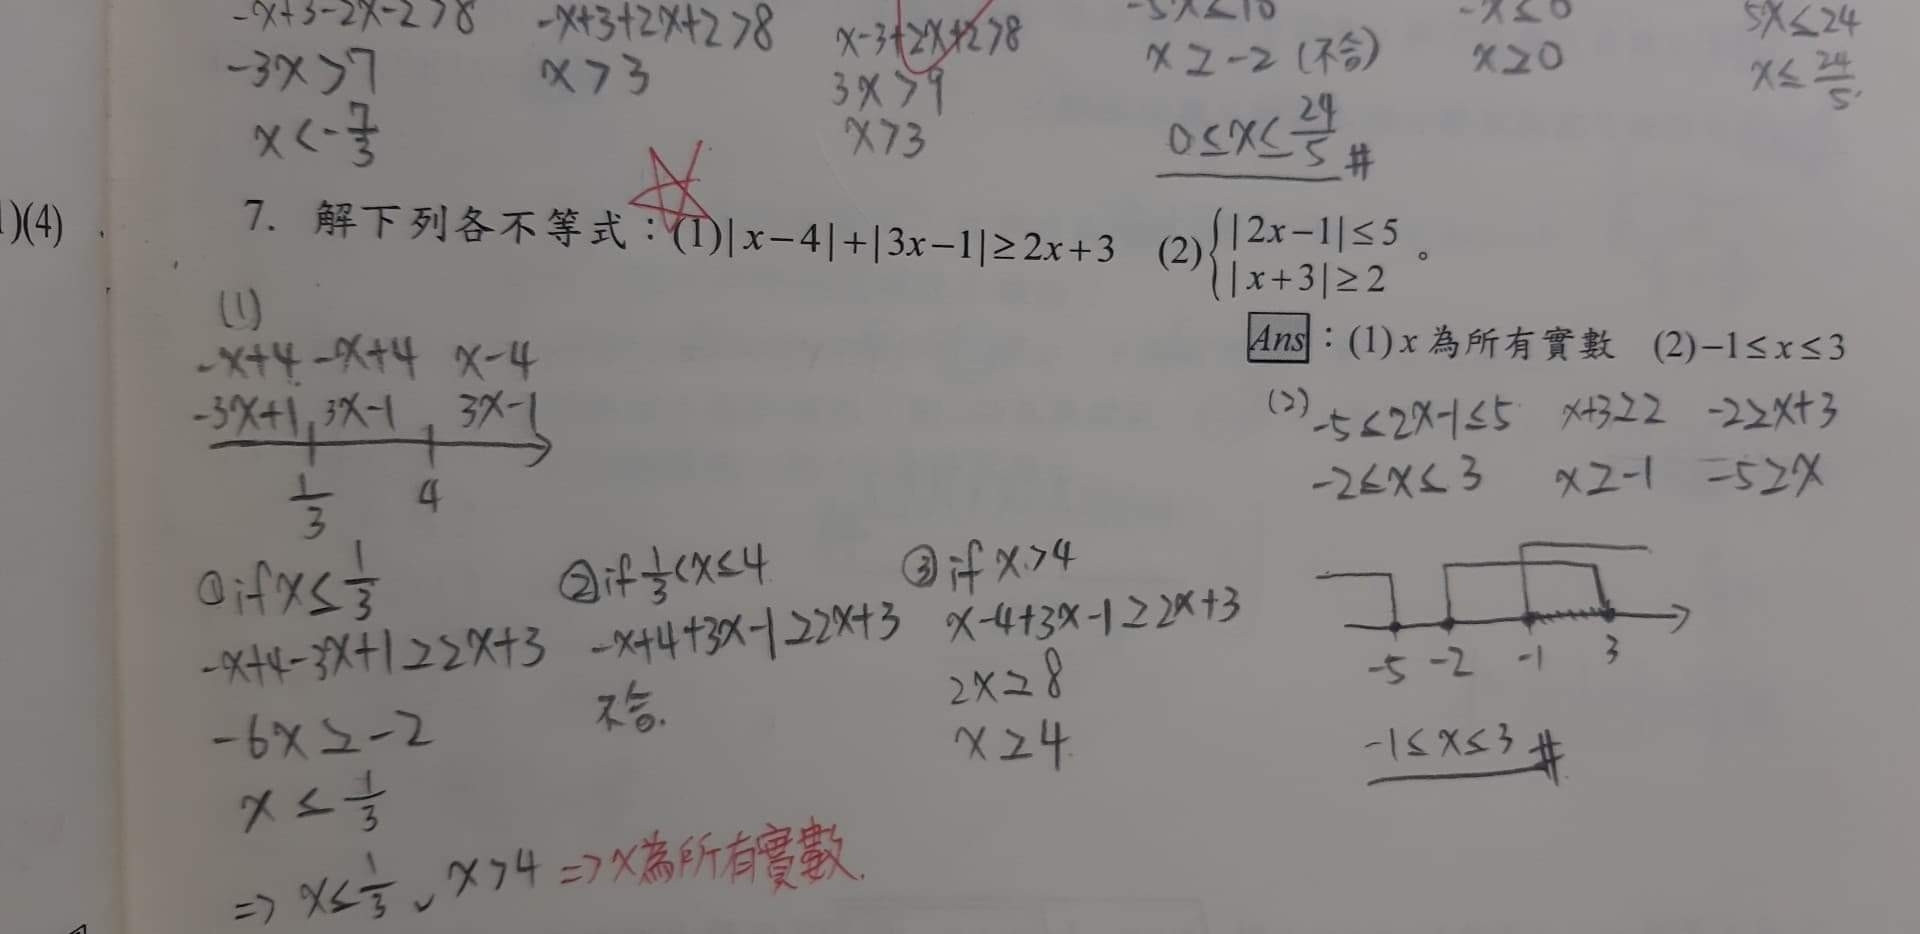 -x+3-2x-2>8
-3x>7
x<-7/3
-x+3+2x+2>8
x>3
x-3+2x+2>8
3x>9
x>3
-5x≤10
x≥-2 (不合)
-x≤0
x≥0
5x≤24
x≤24/5
0≤x≤24/5 #
)(4)
7. 解下列各不等式：(1)|x-4|+|3x-1|≥2x+3 (2){|2x-1|≤5
|x+3|≥2 。
Ans：(1)x為所有實數 (2)-1≤x≤3
(1)
-x+4 -x+4 x-4
-3x+1 3x-1 3x-1
1/3 4
①if x≤1/3
-x+4-3x+1≥2x+3
-6x≥-2
x≤1/3
②if 1/3<x≤4
-x+4+3x-1≥2x+3
不合.
③if x>4
x-4+3x-1≥2x+3
2x≥8
x≥4
⇒ x≤1/3、x>4 ⇒x為所有實數.
(2)
-5≤2x-1≤5 x+3≥2 -2≥x+3
-2≤x≤3 x≥-1 -5≥x
-5 -2 -1 3
-1≤x≤3 #